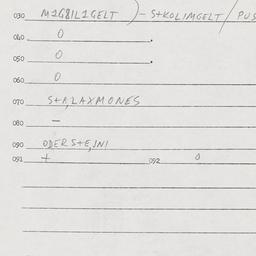 030 M1G8IL1GELT )- S+KOLIMGELT / PUS
040 0 .
050 0 .
060 0
070 S+A,LAXMONES
080 –
090 ODER S+E,INI
091 + 092 0